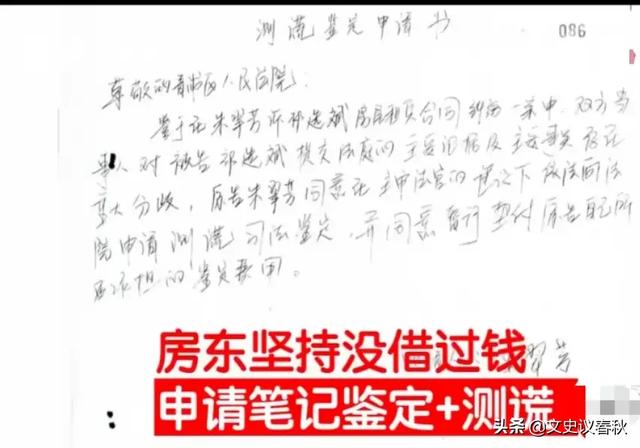 测谎鉴定申请书
086
尊敬的青浦区人民法院:
鉴于在朱翠芳诉祁连斌房屋租赁合同纠纷一案中,双方当
事人对被告祁连斌提交法庭的主要证据及主要事实存在
重大分歧,原告朱翠芳同意在主审法官的建议下依法向法
院申请测谎司法鉴定,并同意暂行垫付原告自己所
应承担的鉴定费用。
翠芳
房东坚持没借过钱
申请笔记鉴定+测谎
头条 @文史议春秋